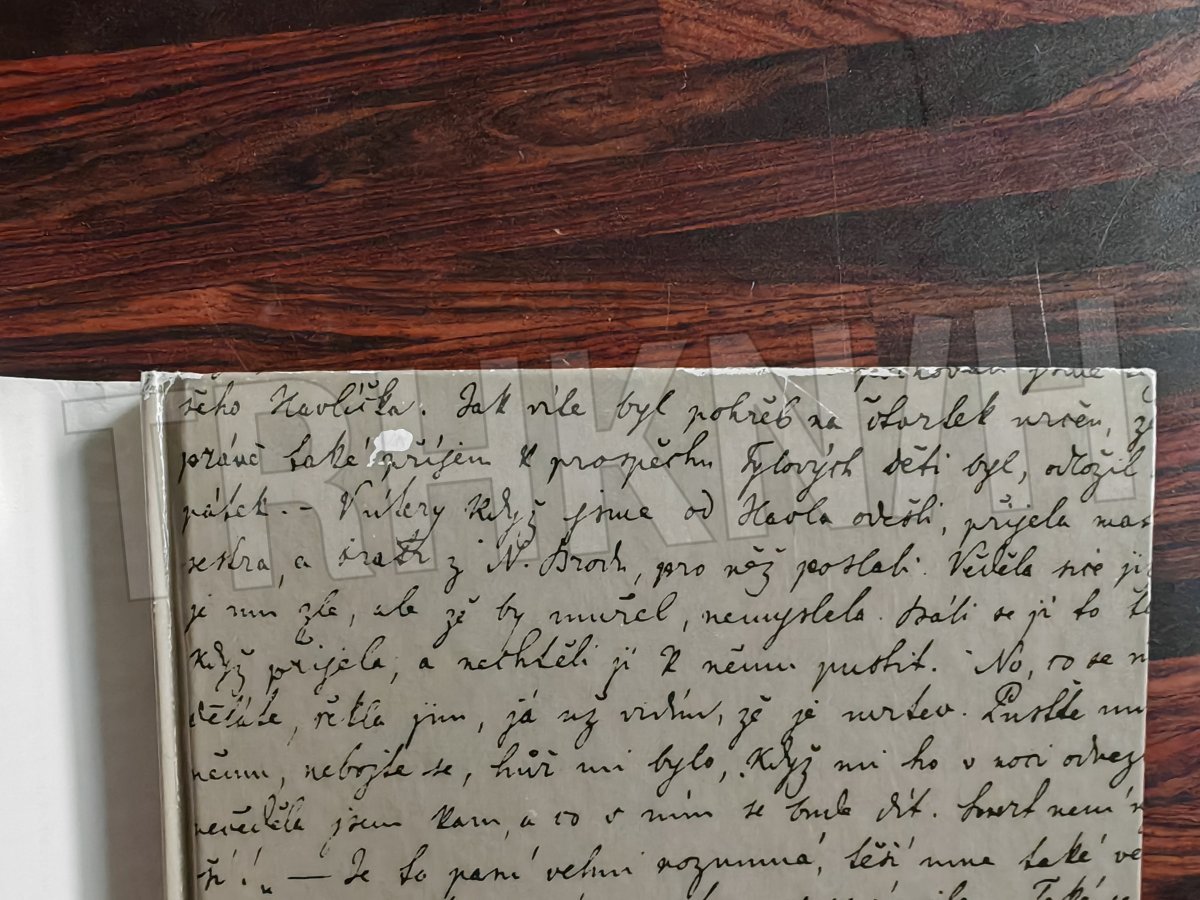 pochovali jsme
šeho Havlíčka. Jak víte byl pohřeb na čtvrtek určen,
právě také příjem k prospěchu Tylových dětí byl, odložil
pátek. – V úterý když jsme od Havla odešli, přijela
sestra, a bratr z N. Brodu, pro něž poslali. Věděla sice
je mu zle, ale že by umřel, nemyslela. Báli se jí to
když přijela, a nechtěli ji k němu pustit. No, co se
děláte, řekla jim, já už vidím, že je mrtev. Pusťte
němu, nebojte se, hůř mi bylo, když mi ho v noci
nevěděla jsem kam, a co s ním se bude dít. Smrt není
ší! „ — Je to paní velmi rozumná, těší mne také
Také
TRHKNIH